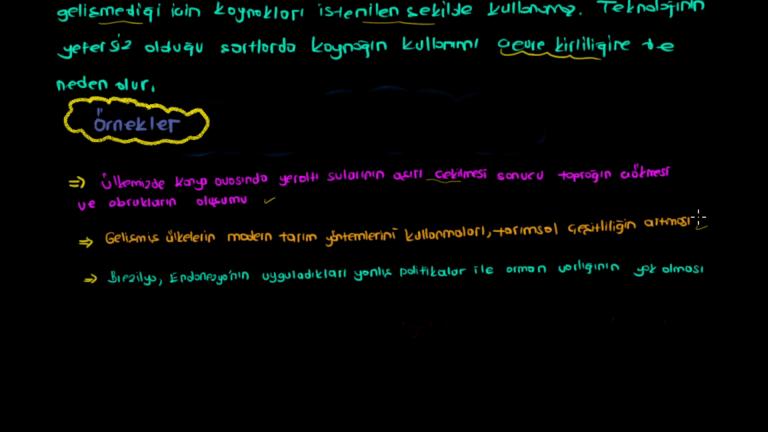 gelişmediği için kaynakları istenilen şekilde kullanamaz. Teknolojinin
yetersiz olduğu şartlarda kaynağın kullanımı çevre kirliliğine de
neden olur.
Örnekler
⇒ Ülkemizde Konya ovasında yeraltı sularının aşırı çekilmesi sonucu toprağın çökmesi
ve obrukların oluşumu ✓
⇒ Gelişmiş ülkelerin modern tarım yöntemlerini kullanmaları, tarımsal çeşitliliğin artması
⇒ Brezilya, Endonezya'nın uyguladıkları yanlış politikalar ile orman varlığının yok olması